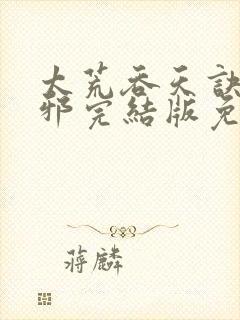 大荒吞天訣
邪完結版免
蔣麟